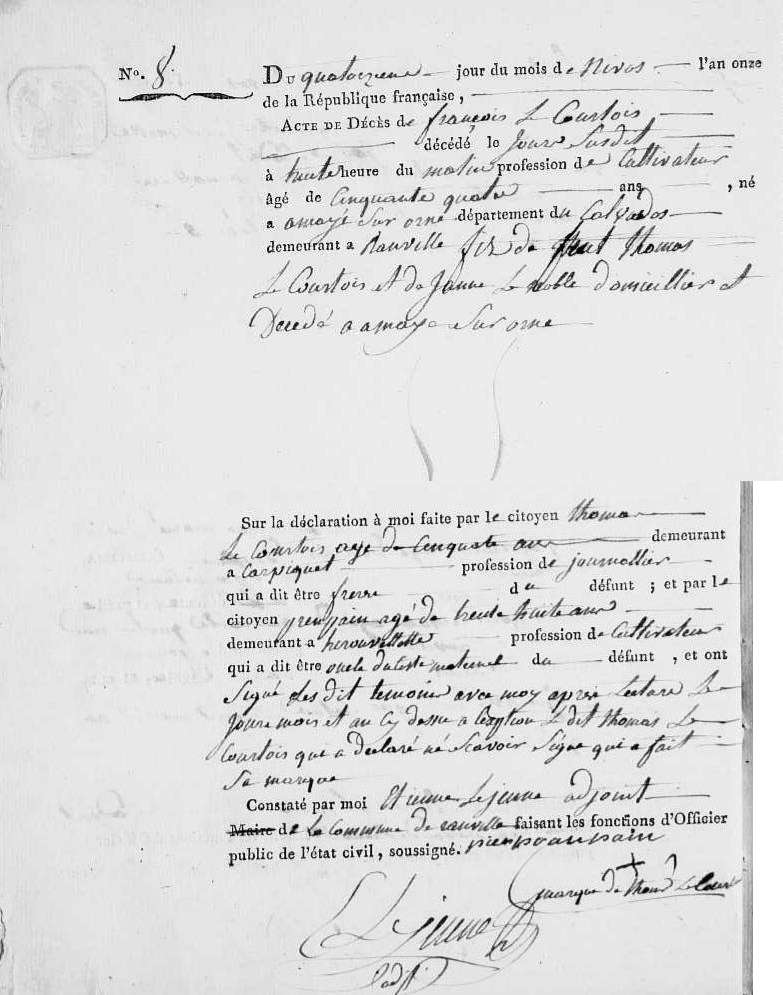 No. 8.
Du quatorzieme jour du mois de Nivos l'an onze
de la République française,
Acte de Décès de françois Le Courtois
décédé le Jour Susdit
à huite heure du matin profession de Cultivateur
âgé de Cinquante quatre ans, né
a amayé Sur orne département du Calvados
demeurant a Ranville fils de feut thomas
Le Courtois et de Janne Le noble domicillier et
Decedé a amaye Sur orne
Sur la déclaration à moi faite par le citoyen thomas
Le Courtois age de Cinquate ans demeurant
a Carpiquet profession de journallier
qui a dit être frerre du défunt ; et par le
citoyen agé de trente huite ans
demeurant a herouvillette profession de Cultivateur
qui a dit être oncle du Coste maternel du défunt, et ont
Signé Les dit temoins avec moy apres Lecture Le
Jour mois et an Cy dessus a Lexption Le dit thomas Le
Courtois que a declaré né Scavoir Signe qui a fait
Sa marque
Constaté par moi Etienne Lejeune adjoint
Maire de La Commune de ranville faisant les fonctions d'Officier
public de l'état civil, soussigné.
marque de thomas Le Cour
Lejeune
adjt